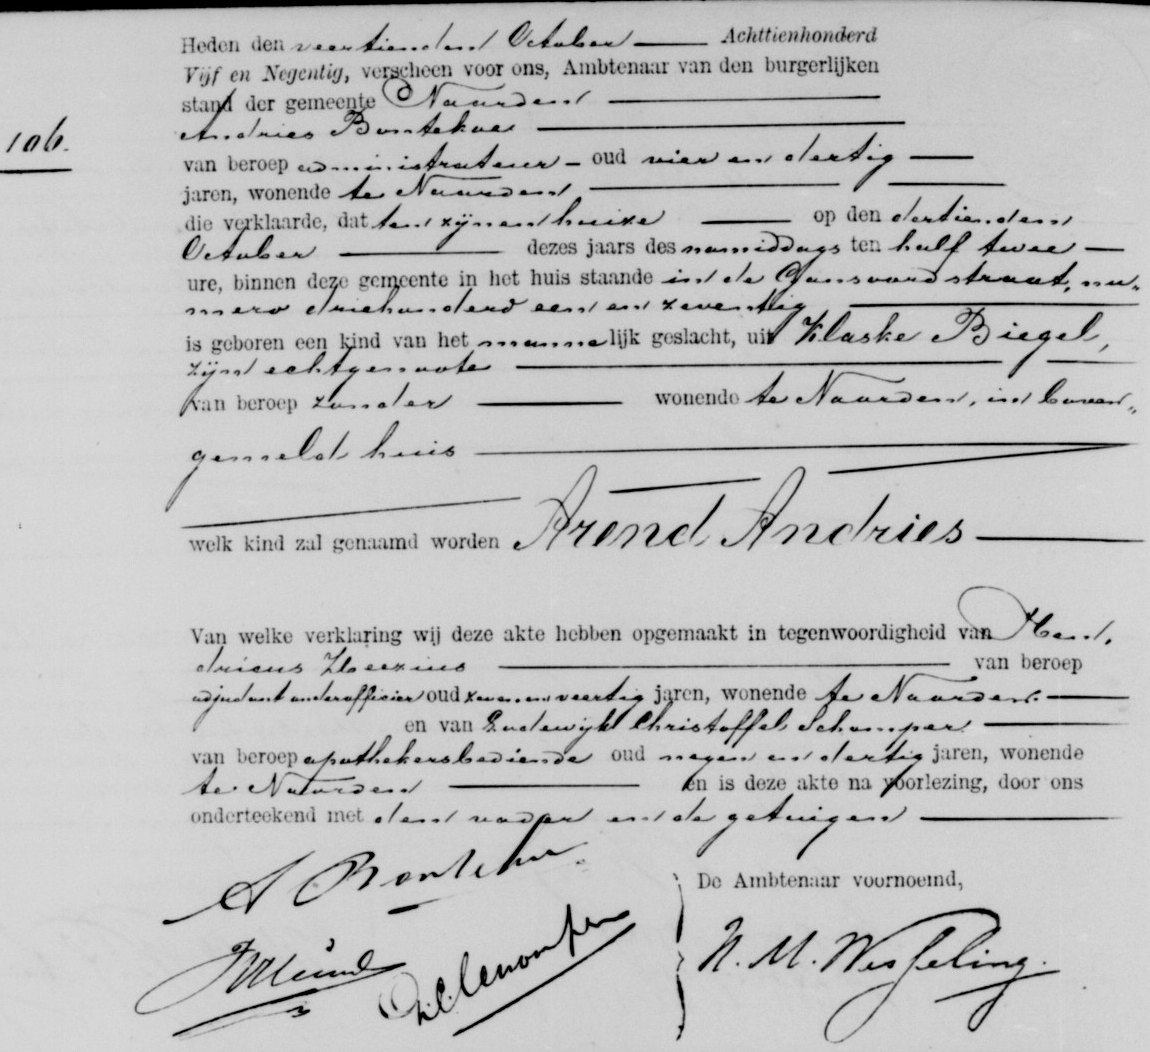 Heden den veertienden October Achttienhonderd
Vijf en Negentig, verscheen voor ons, Ambtenaar van den burgerlijken
stand der gemeente Naarden
Andries Bontekoe
106.
van beroep administrateur oud vier en dertig
jaren, wonende te Naarden,
die verklaarde, dat ten zijnen huize op den dertienden
October dezes jaars des namiddags ten half twee
ure, binnen deze gemeente in het huis staande in de Gansoordstraat, nu„
mero driehonderd een en zeventig
is geboren een kind van het mannelijk geslacht, uit Klaske Biegel,
zijne echtgenoote
van beroep zonder wonende te Naarden, in boven„
gemeld huis
welk kind zal genaamd worden Arend Andries
Van welke verklaring wij deze akte hebben opgemaakt in tegenwoordigheid van Hen„
dricus van beroep
adjudant onderofficier oud zeven en veertig jaren, wonende te Naarden
en van Lodewijk Christoffel Schomper
van beroep apothekersbediende oud negen en dertig jaren, wonende
te Naarden en is deze akte na voorlezing, door ons
onderteekend met den vader en de getuigen
A Bontekoe
De Ambtenaar voornoemd,
N. M. Wesseling.